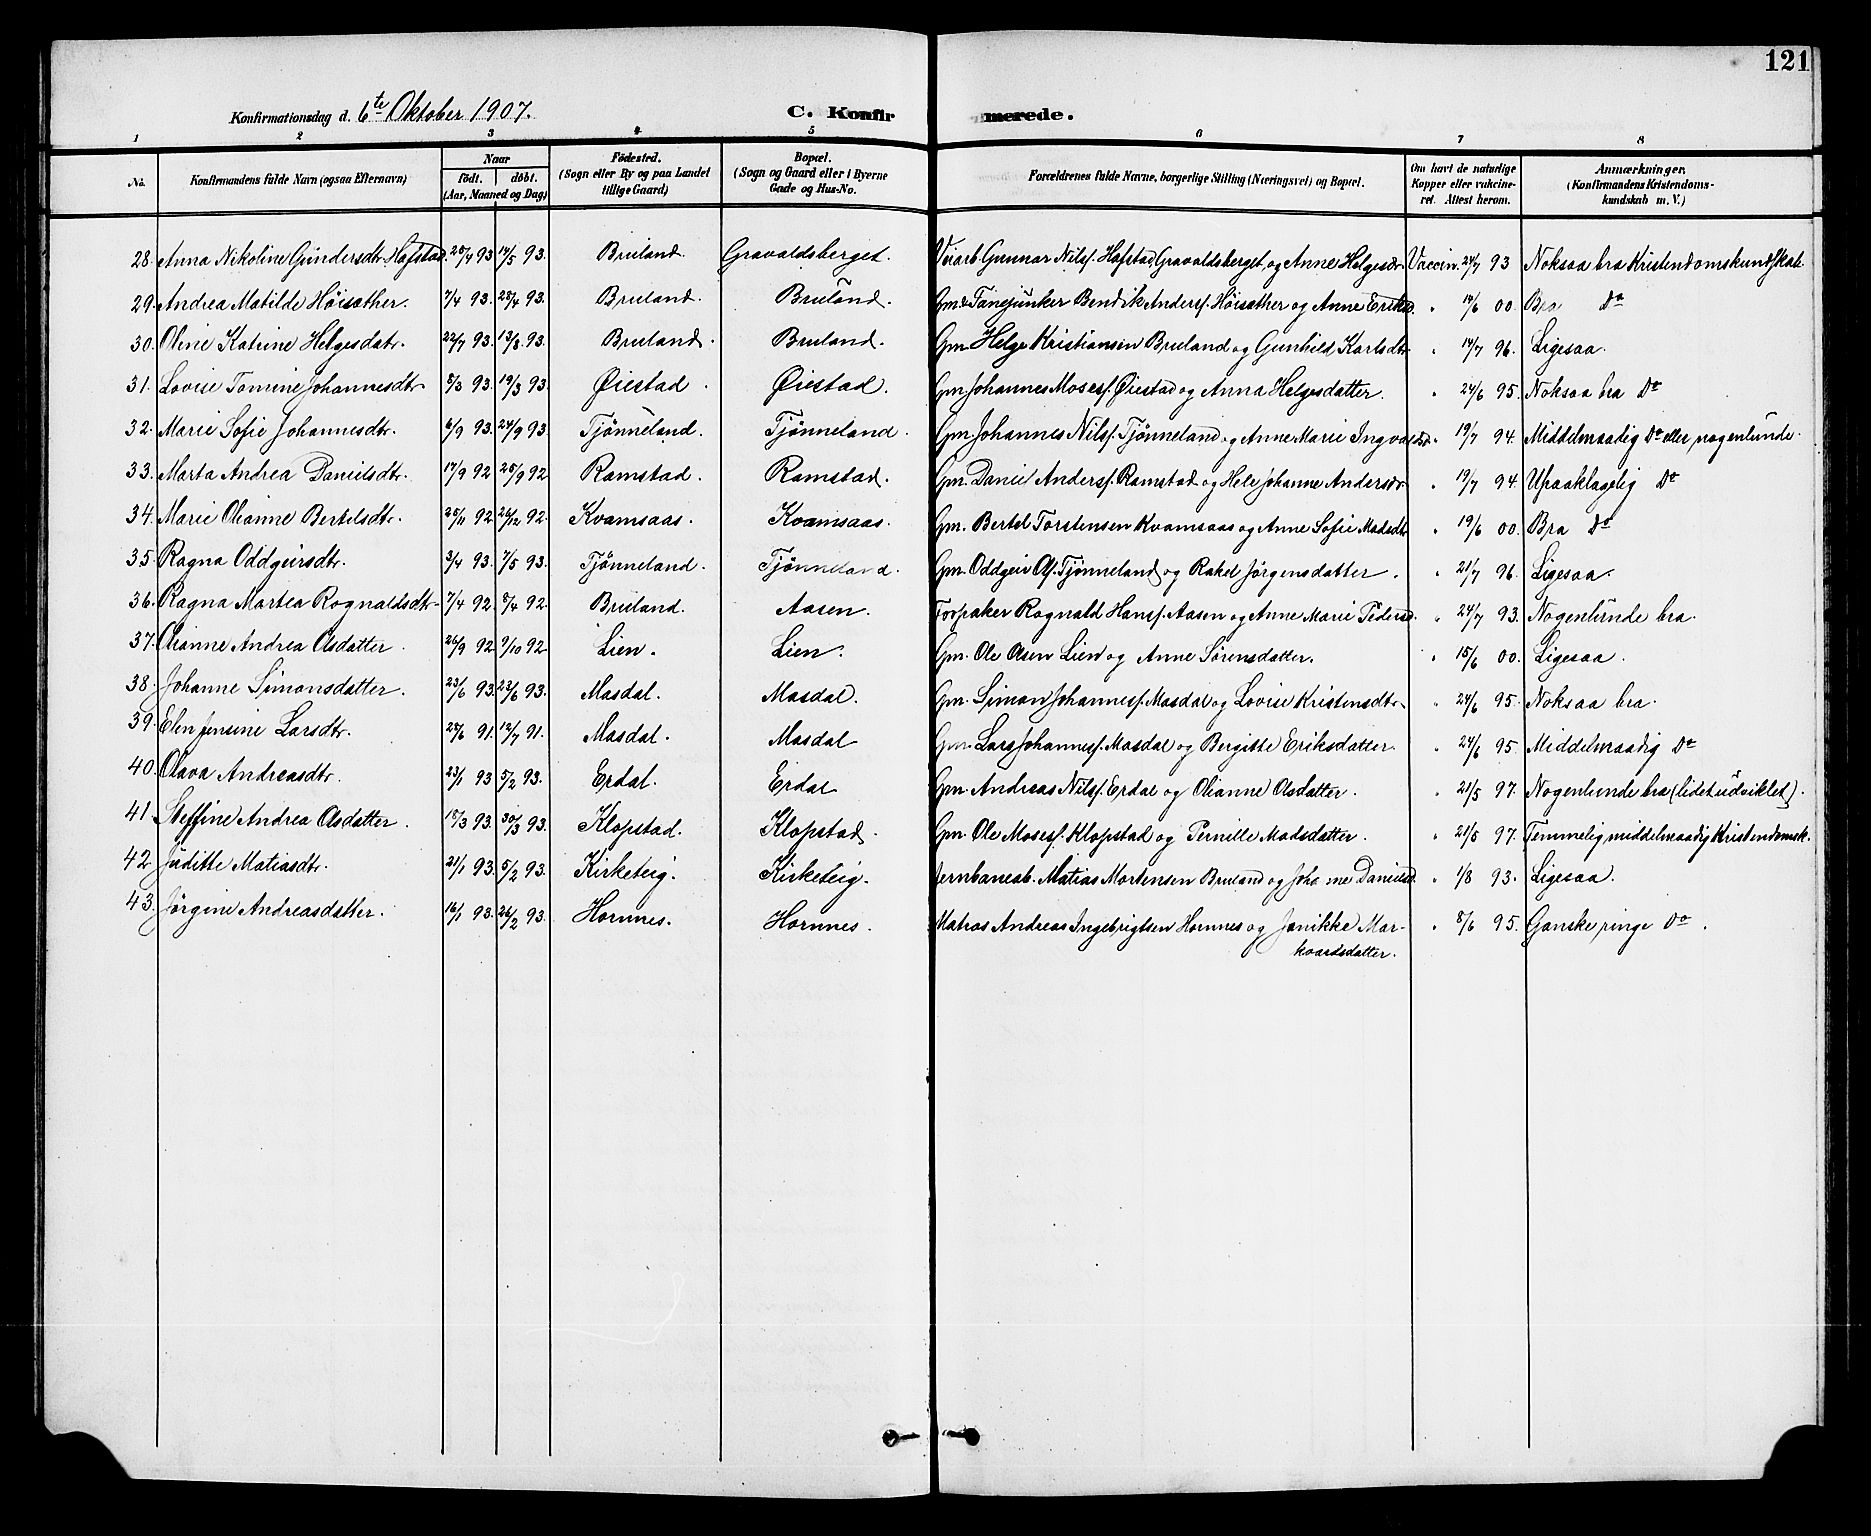 121
Konfirmationsdag d. 6te Oktober 1907. C. Konfirmerede.
1 2 3 4 5 6 7 8
No. Konfirmandens fulde Navn (ogsaa Efternavn) Naar født. døbt. (Aar, Maaned og Dag) Fødested. (Sogn eller By og paa Landet tillige Gaard) Bopæl. (Sogn og Gaard eller i Byerne Gade og Hus-No. Forældrenes fulde Navne, borgerlige Stilling (Næringsvei) og Bopæl. Om havt de naturlige Kopper eller vakcineret. Attest herom. Anmærkninger. (Konfirmandens Kristendomskundskab m. V.)
28. Anna Nikoline Gundersdtr. Hafstad. 28/4 93 14/5 93. Bruland. Gravaldsberget. Veiarb. Gunnar Nilss. Hafstad, Gravaldsberget, og Anne Helgesdr. Vaccin. 24/7 93 Noksaa bra Kristendomskundskab
29. Andrea Matilde Høisæther. 7/4 93. 28/4 93. Bruland. Bruland. Gm. & Fanejunker Bendik Anderss. Høisæther og Anne Eriksd. " 14/6 00. Bra Do
30. Oline Katrine Helgesdatr. 22/7 93. 13/8 93. Bruland. Bruland. Gm. Helge Kristiansen Bruland og Gunhild Karlsdtr. " 14/7 96. Ligesaa.
31. Lovise Tomine Johannesdtr. 8/3 93. 19/3 93. Øiestad. Øiestad. Gm. Johannes Moses. Øiestad og Anna Helgesdatter. " 24/6 95. Noksaa bra Do
32. Marie Sofie Johannesdtr. 6/9 93. 24/9 93. Tjønneland. Tjønneland. Gm. Johannes Nilss. Tjønneland og Anne Marie Ingvaldsd. " 19/7 94. Middelmaadig Do eller nogenlunde.
33. Marta Andrea Danielsdtr. 17/9 92 25/9 92 Ramstad. Ramstad. Gm. Daniel Anderss. Ramstad og Hele Johanne Andersdr. " 19/7 94. Upaaklagelig Do
34. Marie Olianne Bertelsdtr. 25/11 92. 26/12 92. Kvamsaas. Kvamsaas. Gm. Bertel Torstensen Kvamsaas og Anne Sofie Madsdtr. " 19/6 00. Bra Do
35. Ragna Oddgeirsdtr. 3/4 93. 7/5 93. Tjønneland. Tjønneland. Gm. Oddgeir Ols. Tjønneland og Rakel Jørgensdatter. " 21/7 96. Ligesaa.
36. Ragna Martea Rognaldsdtr. 7/4 92. 8/4 92. Bruland. Aasen. Forpakter Rognald Hanss. Aasen og Anne Marie Pedersd. " 24/7 93. Nogenlunde bra.
37. Olianne Andrea Olsdatter. 26/9 92. 9/10 92 Lien. Lien. Gm. Ole Olsen Lien og Anne Sørensdatter. " 15/6 00. Ligesaa.
38. Johanne Simonsdatter. 23/6 93. 23/6 93. Masdal. Masdal. Gm. Simon Johanness. Masdal og Lovise Kristensdtr. " 24/6 95. Noksaa bra.
39. Elen Jensine Larsdtr. 28/6 91. 12/7 91. Masdal. Masdal Gm. Lars Johanness. Masdal og Bergitte Eriksdatter. " 24/6 95. Middelmaadig Do
40. Olava Andreasdtr. 23/1 93 5/2 93. Erdal. Erdal Gm. Andreas Nilss. Erdal og Olianne Olsdatter. " 21/5 97. Nogenlunde bra (lidet udviklet).
41. Steffine Andrea Olsdatter. 18/3 93. 30/3 93. Klopstad. Klopstad. Gm. Ole Moses. Klopstad og Pernille Madsdatter. " 21/5 97. Temmelig middelmaadig Kristendomsk.
42. Juditte Matiasdtr. 21/1 93. 5/2 93. Kirketeig. Kirketeig. Jernbanearb. Matias Mortensen Bruland og Johanne Danielsd. " 1/8 93. Ligesaa.
43. Jørgine Andreasdatter. 16/1 93. 26/2 93. Hornnes. Hornnes. Matros Andreas Ingebrigtsen Hornnes og Janikke Mar- " 8/6 95. Ganske ringe Do.
kvardsdatter.